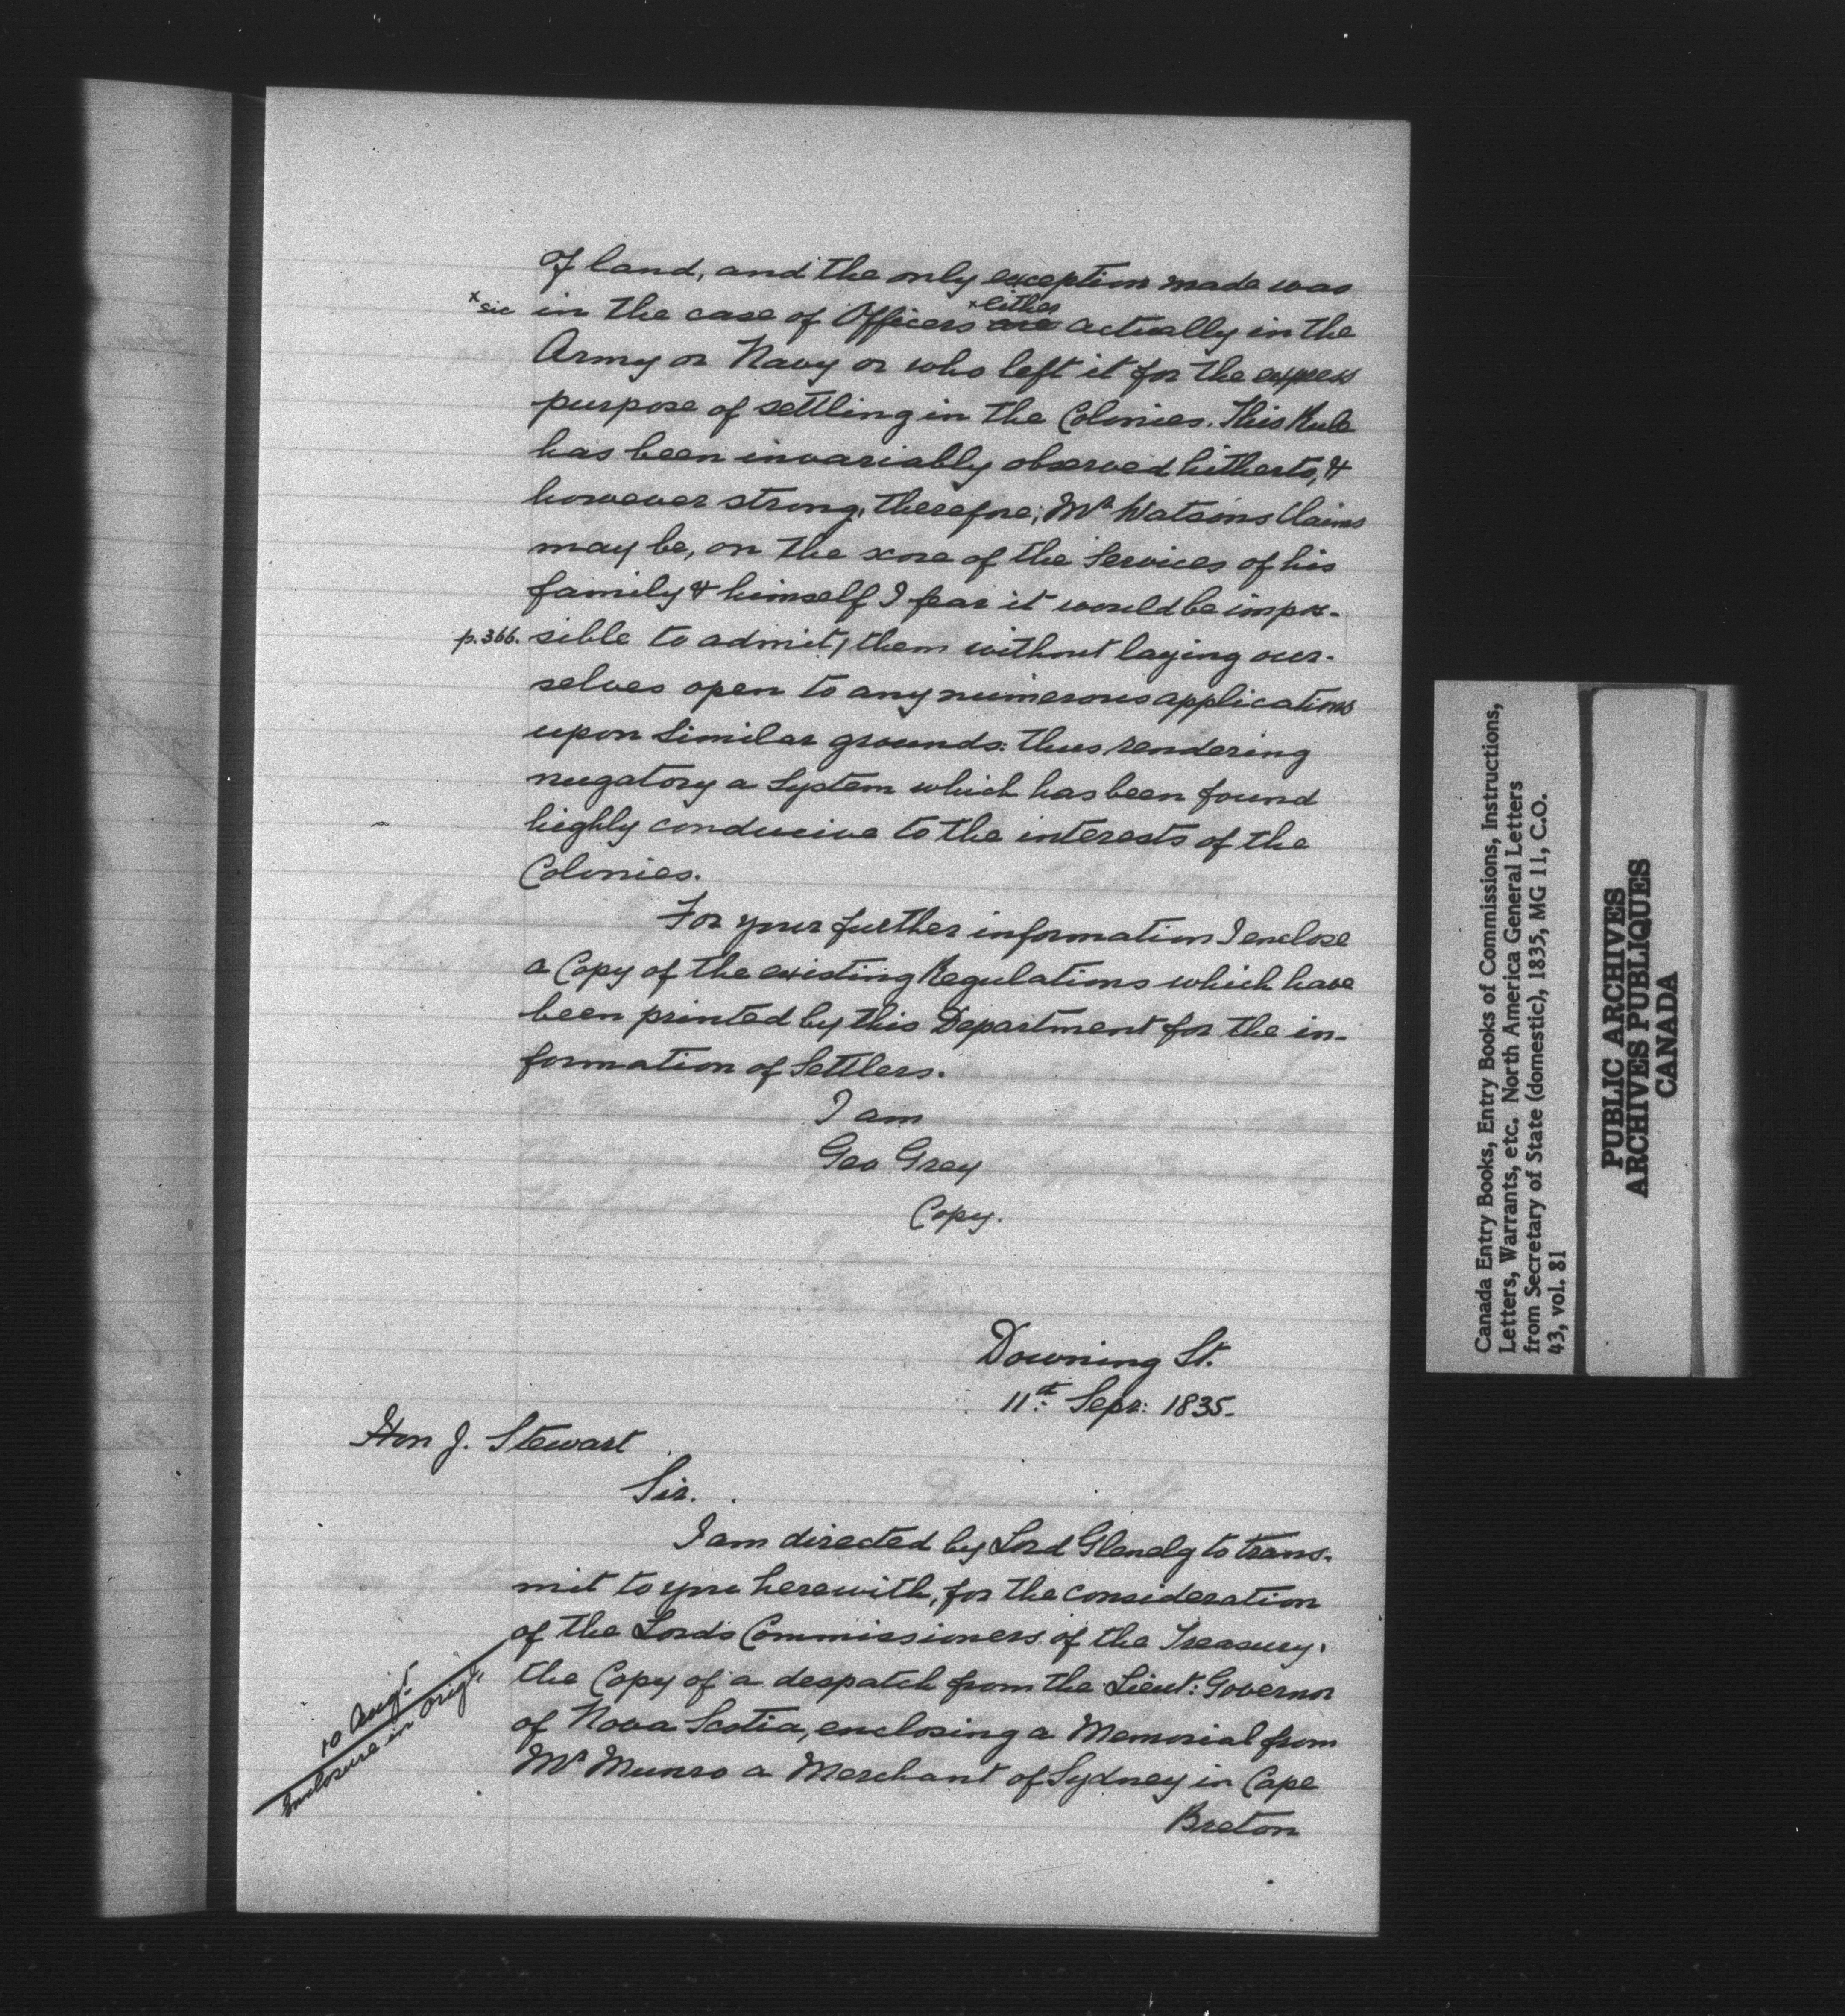 of land, and the only exception made was
x sic in the case of Officers x either are actually in the
Army or Navy or who left it for the express
purpose of settling in the Colonies. This Rule
has been invariably observed hitherto, &
however strong, therefore, Mr Watsons Claims
may be, on the score of the Services of his
family & himself I fear it would be impos-
p.366. sible to admit / them without laying our-
selves open to any numerous applications
upon Similar grounds: thus rendering
nugatory a System which has been found
highly conducive to the interests of the
Colonies.
For your further information I enclose
a Copy of the existing Regulations which have
been printed by this Department for the in-
formation of Settlers.
I am
Geo Grey
Copy.
Downing St.
11th Sepr: 1835.
Hon J. Stewart
Sir.
I am directed by Lord Glenelg to trans-
mit to you herewith, for the consideration
of the Lords Commissioners of the Treasury,
the Copy of a despatch from the Lieut: Governor
of Nova Scotia, enclosing a Memorial from
Mr Munro a Merchant of Sydney in Cape
Breton
10 Augt
Enclosure in Origl.
Canada Entry Books, Entry Books of Commissions, Instructions,
Letters, Warrants, etc. North America General Letters
from Secretary of State (domestic), 1835, MG 11, C.O.
43, vol. 81
PUBLIC ARCHIVES
ARCHIVES PUBLIQUES
CANADA